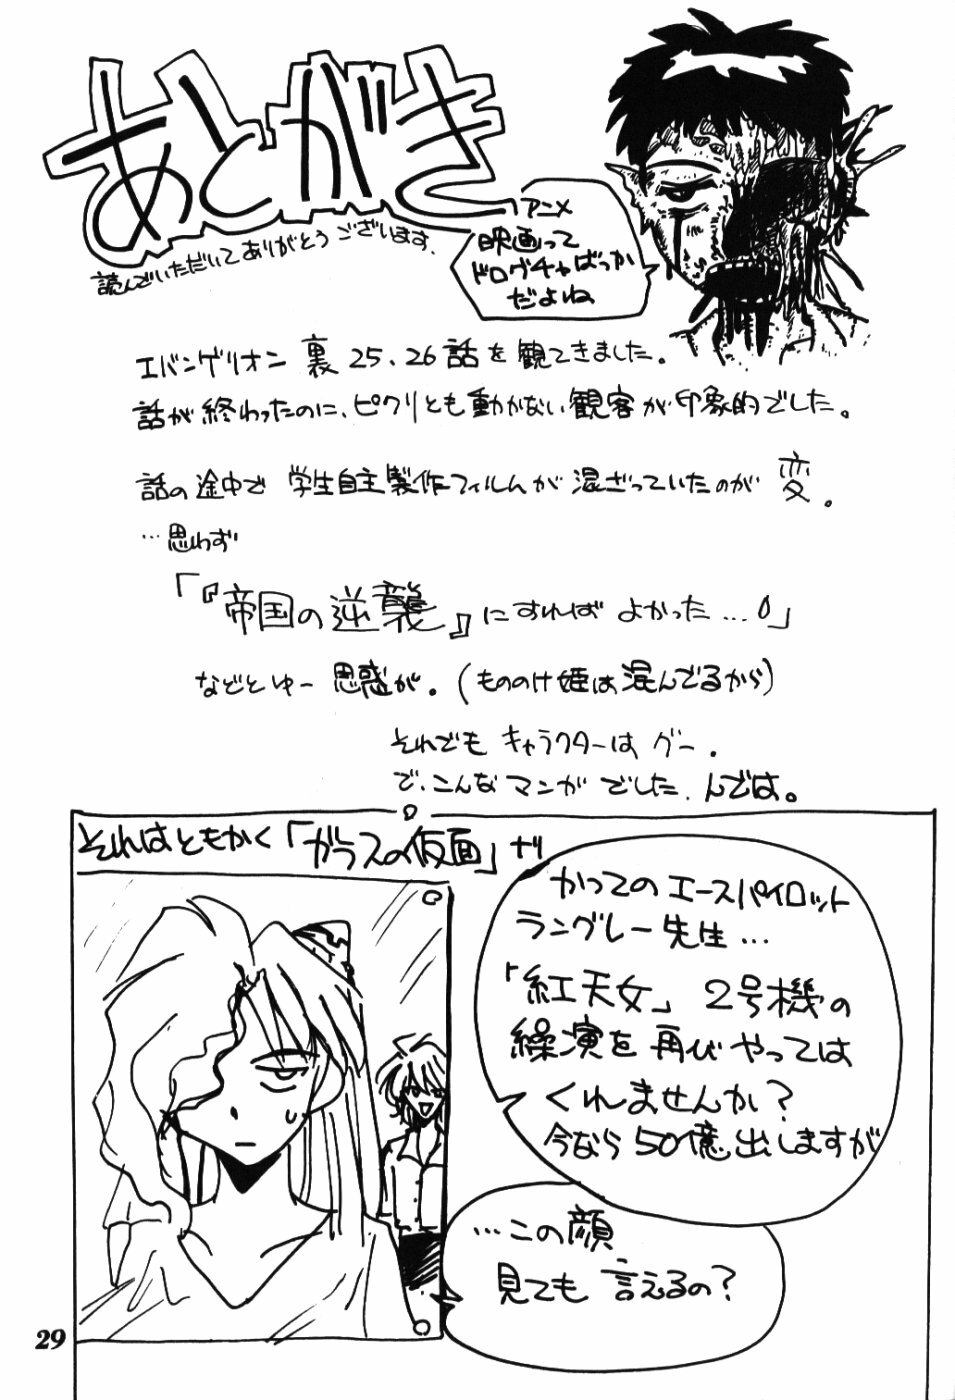 あとがき
読んでいただいてありがとうございます.
アニメ
映画って
ドログチャばっか
だよね
エバンゲリオン 裏 25、26話を観てきました。
話が終わったのに、ピクリとも動かない観客が印象的でした。
話の途中で 学生自主製作フィルムが混ざっていたのが 変。
…思わず
「『帝国の逆襲』にすればよかった…。」
などとゆー思惑が。(もののけ姫は混んでるから)
それでもキャラクターはグー.
で、こんなマンガでした. んでは。
それはともかく「ガラスの仮面」ナリ
かってのエースパイロット
ラングレー先生…
「紅天女」2号機の
繰演を再びやっては
くれませんか?
今なら50億出しますが
…この顔
見ても言えるの?
29